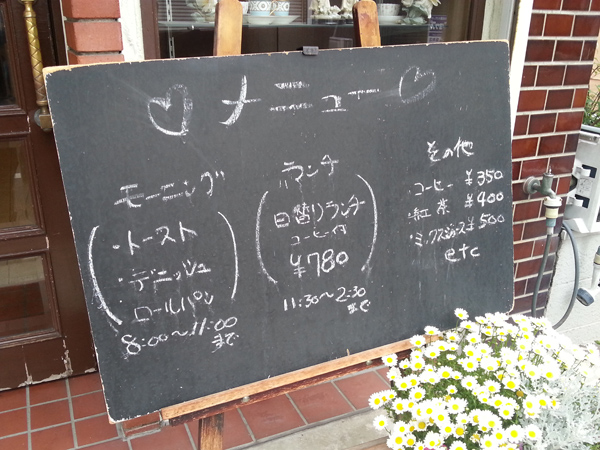 ♡メニュー♡
モーニング
・トースト
・デニッシュ
ロールパン
8:00〜11:00
まで
ランチ
日替りランチ
コーヒー付
¥780
11:30〜2:30
まで
その他
・コーヒー ¥350
・紅茶 ¥400
・ミックスジュース ¥500
etc